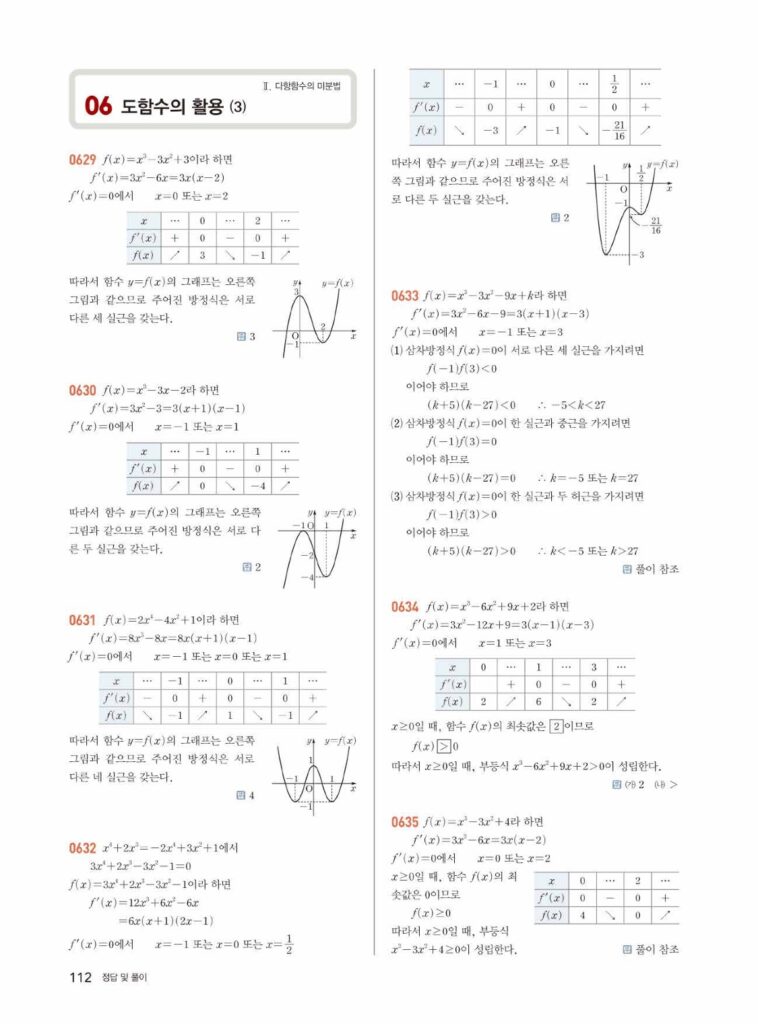 II. 다항함수의 미분법
06 도함수의 활용 (3)
0629 f(x)=x³-3x²+3이라 하면
f'(x)=3x²-6x=3x(x-2)
f'(x)=0에서 x=0 또는 x=2
x … 0 … 2 …
f'(x) + 0 - 0 +
f(x) ↗ 3 ↘ -1 ↗
따라서 함수 y=f(x)의 그래프는 오른쪽
그림과 같으므로 주어진 방정식은 서로
다른 세 실근을 갖는다.
답 3
y y=f(x)
3
2
O x
-1
0630 f(x)=x³-3x-2라 하면
f'(x)=3x²-3=3(x+1)(x-1)
f'(x)=0에서 x=-1 또는 x=1
x … -1 … 1 …
f'(x) + 0 - 0 +
f(x) ↗ 0 ↘ -4 ↗
따라서 함수 y=f(x)의 그래프는 오른쪽
그림과 같으므로 주어진 방정식은 서로 다
른 두 실근을 갖는다.
답 2
y y=f(x)
-1 O 1
x
-2
-4
0631 f(x)=2x⁴-4x²+1이라 하면
f'(x)=8x³-8x=8x(x+1)(x-1)
f'(x)=0에서 x=-1 또는 x=0 또는 x=1
x … -1 … 0 … 1 …
f'(x) - 0 + 0 - 0 +
f(x) ↘ -1 ↗ 1 ↘ -1 ↗
따라서 함수 y=f(x)의 그래프는 오른쪽
그림과 같으므로 주어진 방정식은 서로
다른 네 실근을 갖는다.
답 4
y y=f(x)
1
-1 1
O x
-1
0632 x⁴+2x³=-2x⁴+3x²+1에서
3x⁴+2x³-3x²-1=0
f(x)=3x⁴+2x³-3x²-1이라 하면
f'(x)=12x³+6x²-6x
=6x(x+1)(2x-1)
f'(x)=0에서 x=-1 또는 x=0 또는 x=1/2
x … -1 … 0 … 1/2 …
f'(x) - 0 + 0 - 0 +
f(x) ↘ -3 ↗ -1 ↘ -21/16 ↗
따라서 함수 y=f(x)의 그래프는 오른
쪽 그림과 같으므로 주어진 방정식은 서
로 다른 두 실근을 갖는다.
답 2
y y=f(x)
-1 1/2
O x
-1
-21/16
-3
0633 f(x)=x³-3x²-9x+k라 하면
f'(x)=3x²-6x-9=3(x+1)(x-3)
f'(x)=0에서 x=-1 또는 x=3
(1) 삼차방정식 f(x)=0이 서로 다른 세 실근을 가지려면
f(-1)f(3)<0
이어야 하므로
(k+5)(k-27)<0 ∴ -5<k<27
(2) 삼차방정식 f(x)=0이 한 실근과 중근을 가지려면
f(-1)f(3)=0
이어야 하므로
(k+5)(k-27)=0 ∴ k=-5 또는 k=27
(3) 삼차방정식 f(x)=0이 한 실근과 두 허근을 가지려면
f(-1)f(3)>0
이어야 하므로
(k+5)(k-27)>0 ∴ k<-5 또는 k>27
답 풀이 참조
0634 f(x)=x³-6x²+9x+2라 하면
f'(x)=3x²-12x+9=3(x-1)(x-3)
f'(x)=0에서 x=1 또는 x=3
x 0 … 1 … 3 …
f'(x) + 0 - 0 +
f(x) 2 ↗ 6 ↘ 2 ↗
x≥0일 때, 함수 f(x)의 최솟값은 2이므로
f(x) > 0
따라서 x≥0일 때, 부등식 x³-6x²+9x+2>0이 성립한다.
답 ㈎ 2 ㈏ >
0635 f(x)=x³-3x²+4라 하면
f'(x)=3x²-6x=3x(x-2)
f'(x)=0에서 x=0 또는 x=2
x≥0일 때, 함수 f(x)의 최
솟값은 0이므로
f(x)≥0
따라서 x≥0일 때, 부등식
x³-3x²+4≥0이 성립한다.
x 0 … 2 …
f'(x) 0 - 0 +
f(x) 4 ↘ 0 ↗
답 풀이 참조
112 정답 및 풀이